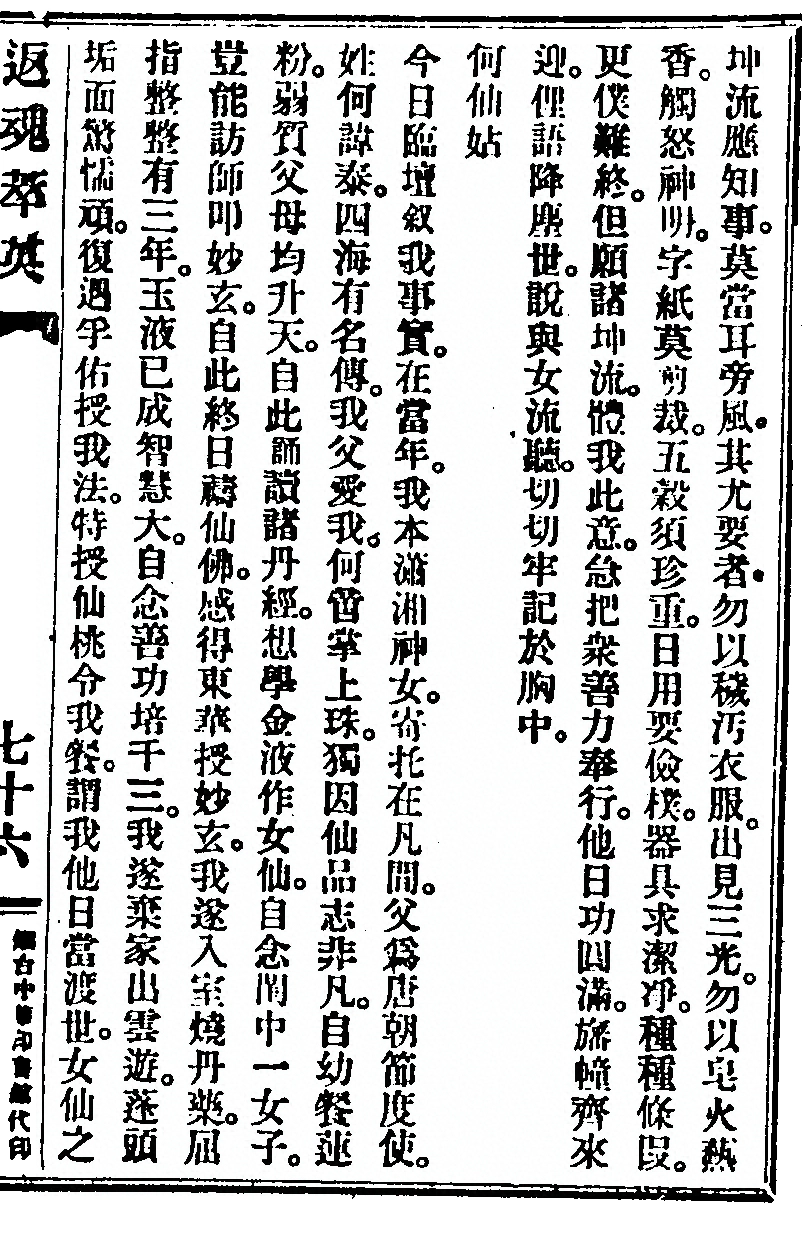 坤流應知事。莫當耳旁風。其尤要者。勿以穢汚衣服。出見三光。勿以皂火爇
香。觸怒神明。字紙莫剪裁。五穀須珍重。日用要儉樸。器具求潔淨。種種條段。
更僕難終。但願諸坤流。體我此意。急把衆善力奉行。他日功圓滿。旛幢齊來
迎。俚語降塵世。說與女流聽。切切牢記於胸中。
何仙姑
今日臨壇敘我事實。在當年。我本瀟湘神女。寄托在凡間。父爲唐朝節度使。
姓何諱泰。四海有名傳。我父愛我。何啻掌上珠。獨因仙品志非凡。自幼餐蓮
粉。弱質父母均升天。自此誦讀諸丹經。想學金液作女仙。自念閨中一女子。
豈能訪師叩妙玄。自此終日禱仙佛。感得東華授妙玄。我遂入室燒丹藥。屈
指整整有三年。玉液已成智慧大。自念善功培千三。我遂棄家出雲遊。蓬頭
垢面驚懦頑。復遇孚佑授我法。特授仙桃令我餐。謂我他日當渡世。女仙之
返魂萃英
七十六
烟台中華印書館代印